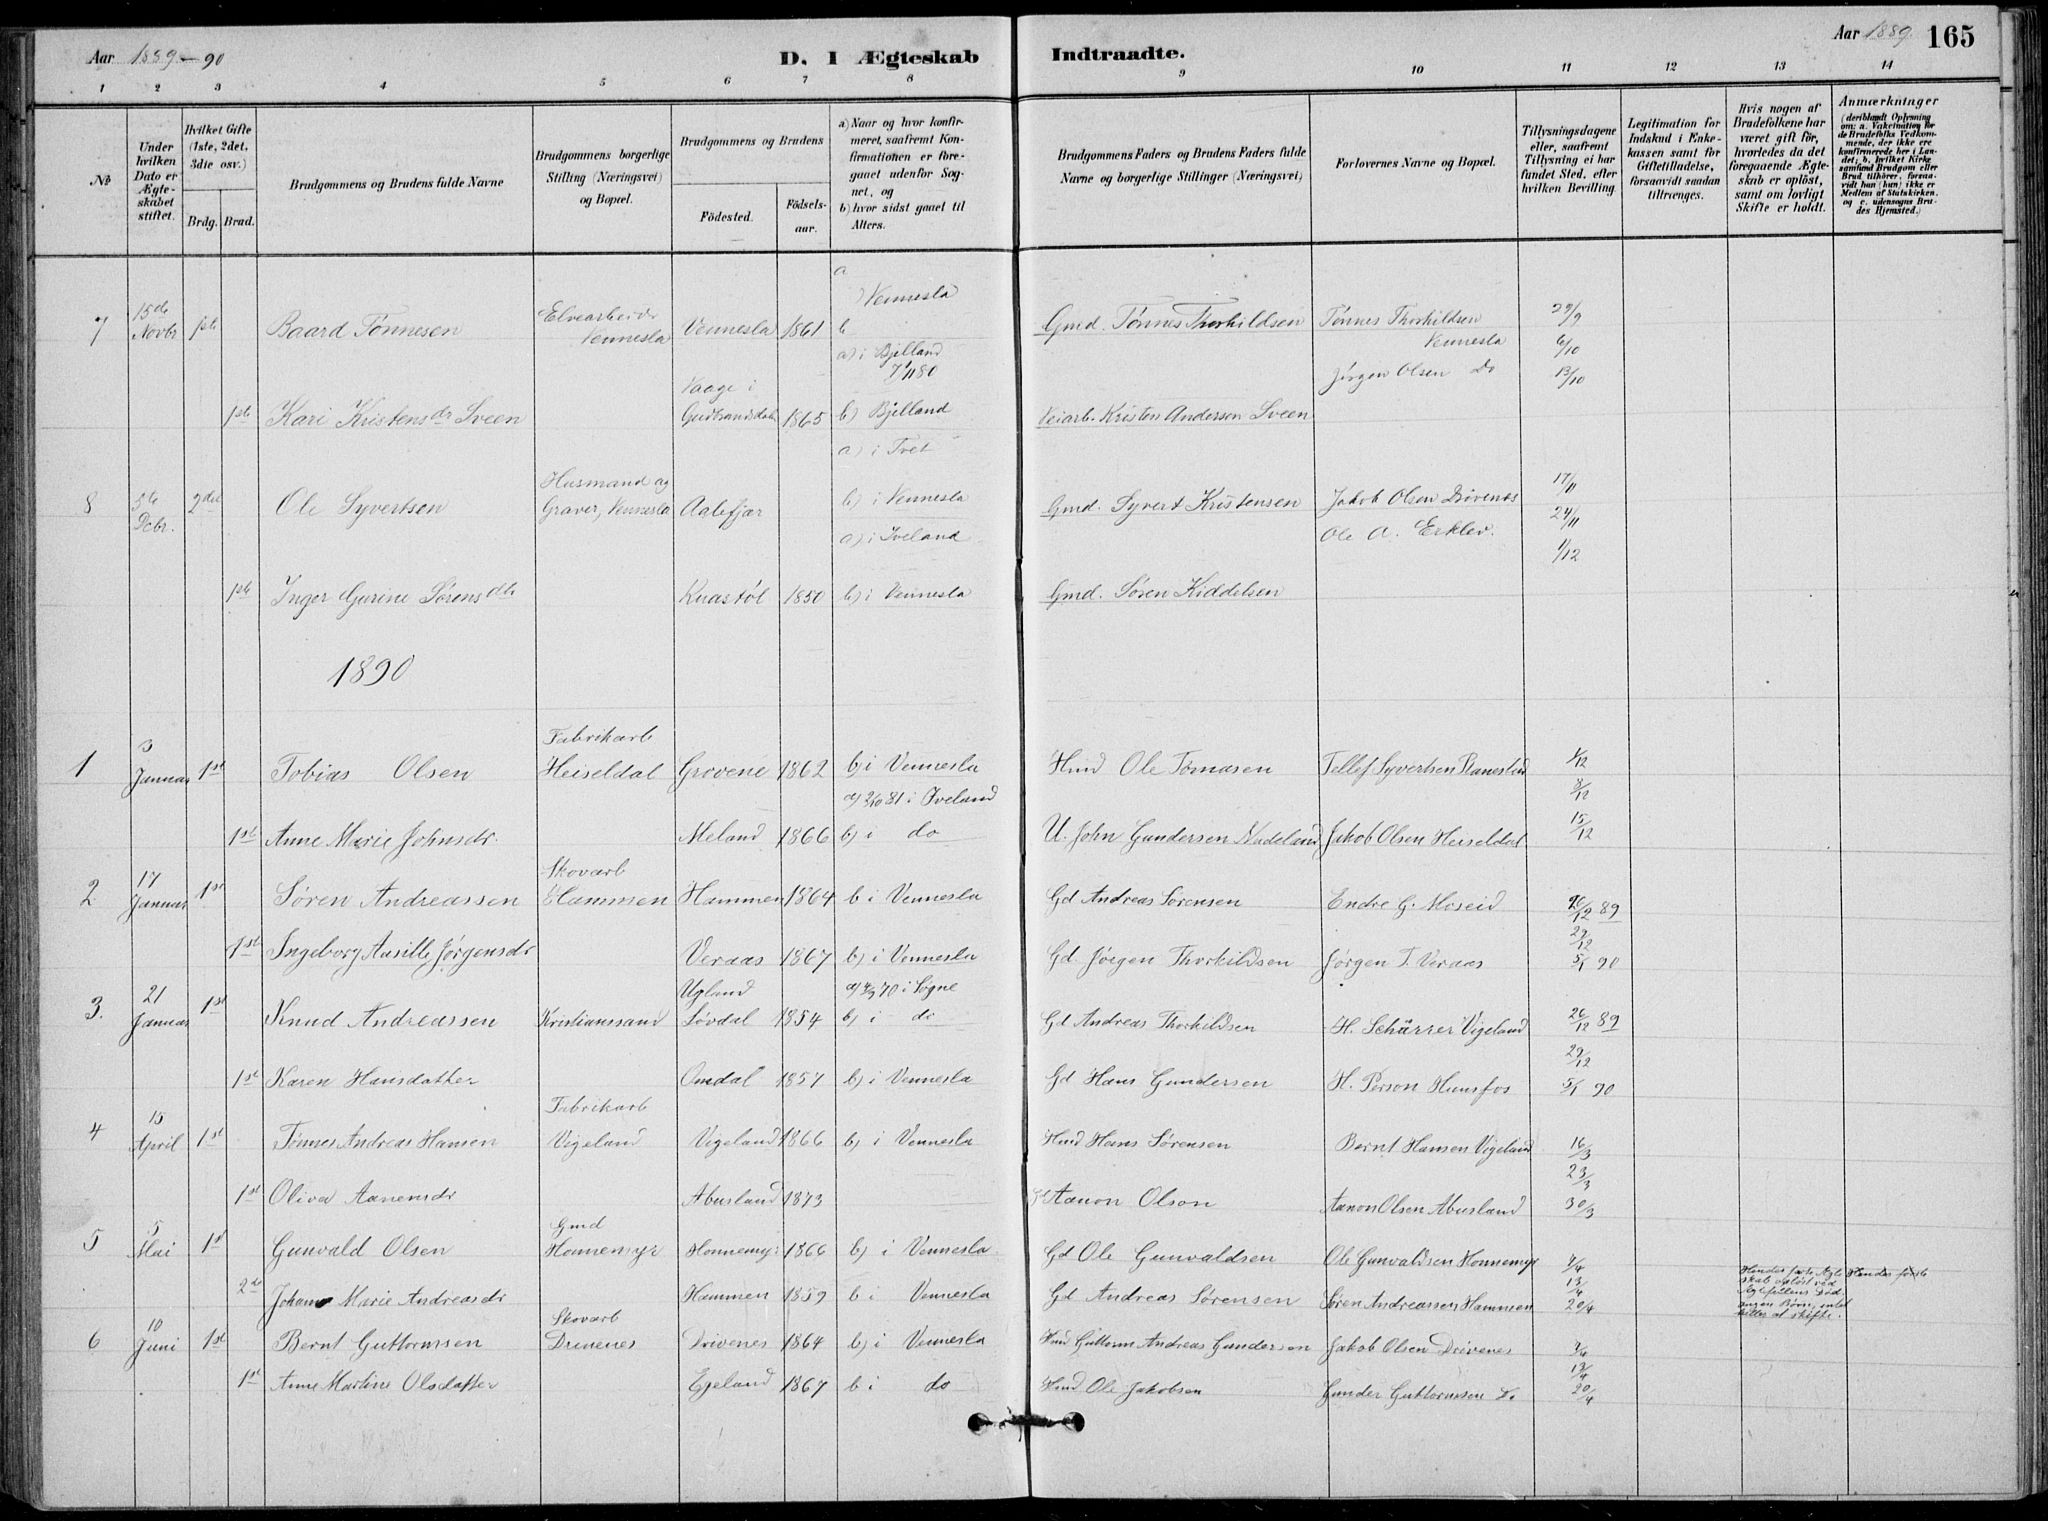 Aar 1889-90
D. I Ægteskab
Indtraadte.
Aar 1889. 165
1 2 3 4 5 6 7 8 9 10 11 12 13 14
№
Under hvilken Dato er Ægteskabet stiftet.
Hvilket Gifte (1ste, 2det, 3die osv.)
Brdg. Brud.
Brudgommens og Brudens fulde Navne
Brudgommens borgerlige Stilling (Næringsvei) og Bopæl.
Brudgommens og Brudens
Födested.
Födselsaar.
a) Naar og hvor konfirmeret, saafremt Konfirmationen er foregaaet udenfor Sognet, og
b) hvor sidst gaaet til Alters.
Brudgommens Faders og Brudens Faders fulde Navne og borgerlige Stillinger (Næringsvei)
Forlovernes Navne og Bopæl.
Tillysningsdagene eller, saafremt Tillysning ei har fundet Sted, efter hvilken Bevilling.
Legitimation for Indskud i Enkekassen samt for Giftetilladelse, forsaavidt saadan tiltrænges.
Hvis nogen af Brudefolkene har været gift för, hvorledes da det foregaaende Ægteskab er oplöst, samt om lovligt Skifte er holdt.
Anmærkninger (deriblandt Oplysning om: a. Vakcination for de Brudefolks Vedkommende, der ikke ere konfirmerede her i Landet; b. hvilket Kirkesamfund Brudgom eller Brud tilhörer, forsaavidt han (hun) ikke er Medlem af Statskirken, og c. udensogns Brudes Hjemsted.)
7 15de Novbr 1ste Baard Tønnesen Elvearbeider Vennesla Vennesla 1861 a) Vennesla b Gmd. Tønnes Thorkildsen Tønnes Thorkildsen Vennesla 29/9 6/10
Jørgen Olsen Do 13/10
1ste Kari Kristensdr Sveen Vaage i Gudbrandsdalen 1865 a) i Bjelland 7/11 80 b) Bjelland Veiarb. Kristen Andersen Sveen
8 5te Dcbr. 2det Ole Syvertsen Husmand og Graver, Vennesla Aalefjær a) i Tvet b) i Vennesla Gmd. Syvert Kristensen Jakob Olsen Drivenes 17/11
Ole A. Erklev. 24/11 1/12
1ste Inger Gurine Sørensdtr Knastøl 1850 a) i Iveland b) i Vennesla Gmd. Søren Kiddelsen
1890
1 3 Januar 1st Tobias Olsen Fabrikarb Heiseldal Grovene 1862 b) i Vennesla Hmd Ole Tomasen Tellef Syvertsen 1/12 8/12
1st Anne Marie Johnsdr. Meland 1866 a) 2/10 81 i Iveland b) i do U. John Gundersen Nadeland Jakob Olsen Heiseldal 15/12
2 17 Januar 1st Søren Andreassen Skovarb Hammen Hammen 1864 b i Vennesla Gd Andreas Sørensen Endre G. Moseid 26/12 89
1st Ingeborg Jørgensdr Veraas 1867 b) i Vennesla Gd Jørgen Thorkildsen Jørgen T. Veraas 29/12 5/1 90
3. 21 Januar 1st Knud Andreassen Kristianssand Ugland Løvdal 1854 a) 4/9 70 i Søgne b) i do Gd Andreas Thorkildsen H. Schürrer Vigeland 26/12 89
1st Karen Hansdatter Omdal 1857 b) i Vennesla Gd Hans Gundersen H. Person Hunsfos 29/12 5/1 90
4 15 April 1st Tønnes Andreas Hansen Fabrikarb Vigeland Vigeland 1866 b) i Vennesla Hmd Hans Sørensen Bernt Hansen Vigeland 16/3
1st Oliva Aanensdr Abusland 1873 Gd Aanon Olson Aanon Olsen Abusland 23/3 30/3
5 5 Mai 1st Gunvald Olsen Gmd Honnemyr Honnemyr 1866 b) i Vennesla Gd Ole Gunvaldsen Ole Gunvaldsen Honnemyr 7/4
2de Johanne Marie Andreasdr Hammen 1859 b i Vennesla Gd Andreas Sørensen Søren Andreassen Hammen 13/4 20/4 Hendes første Ægteskab opløst ved Ægtefellens Død ingen Børn, intet Skifte. Hendes første
6 10 Juni 1st Bernt Guttormsen Skovarb Drivenes Drivenes 1864 b) i Vennesla Hmd Guttorm Andreas Gundersen Jakob Olsen Drivenes
1st Anne Martine Olsdatter Egeland 1867 b i do Hmd Ole Jakobsen Gunder Guttormsen Do 13/4 20/4